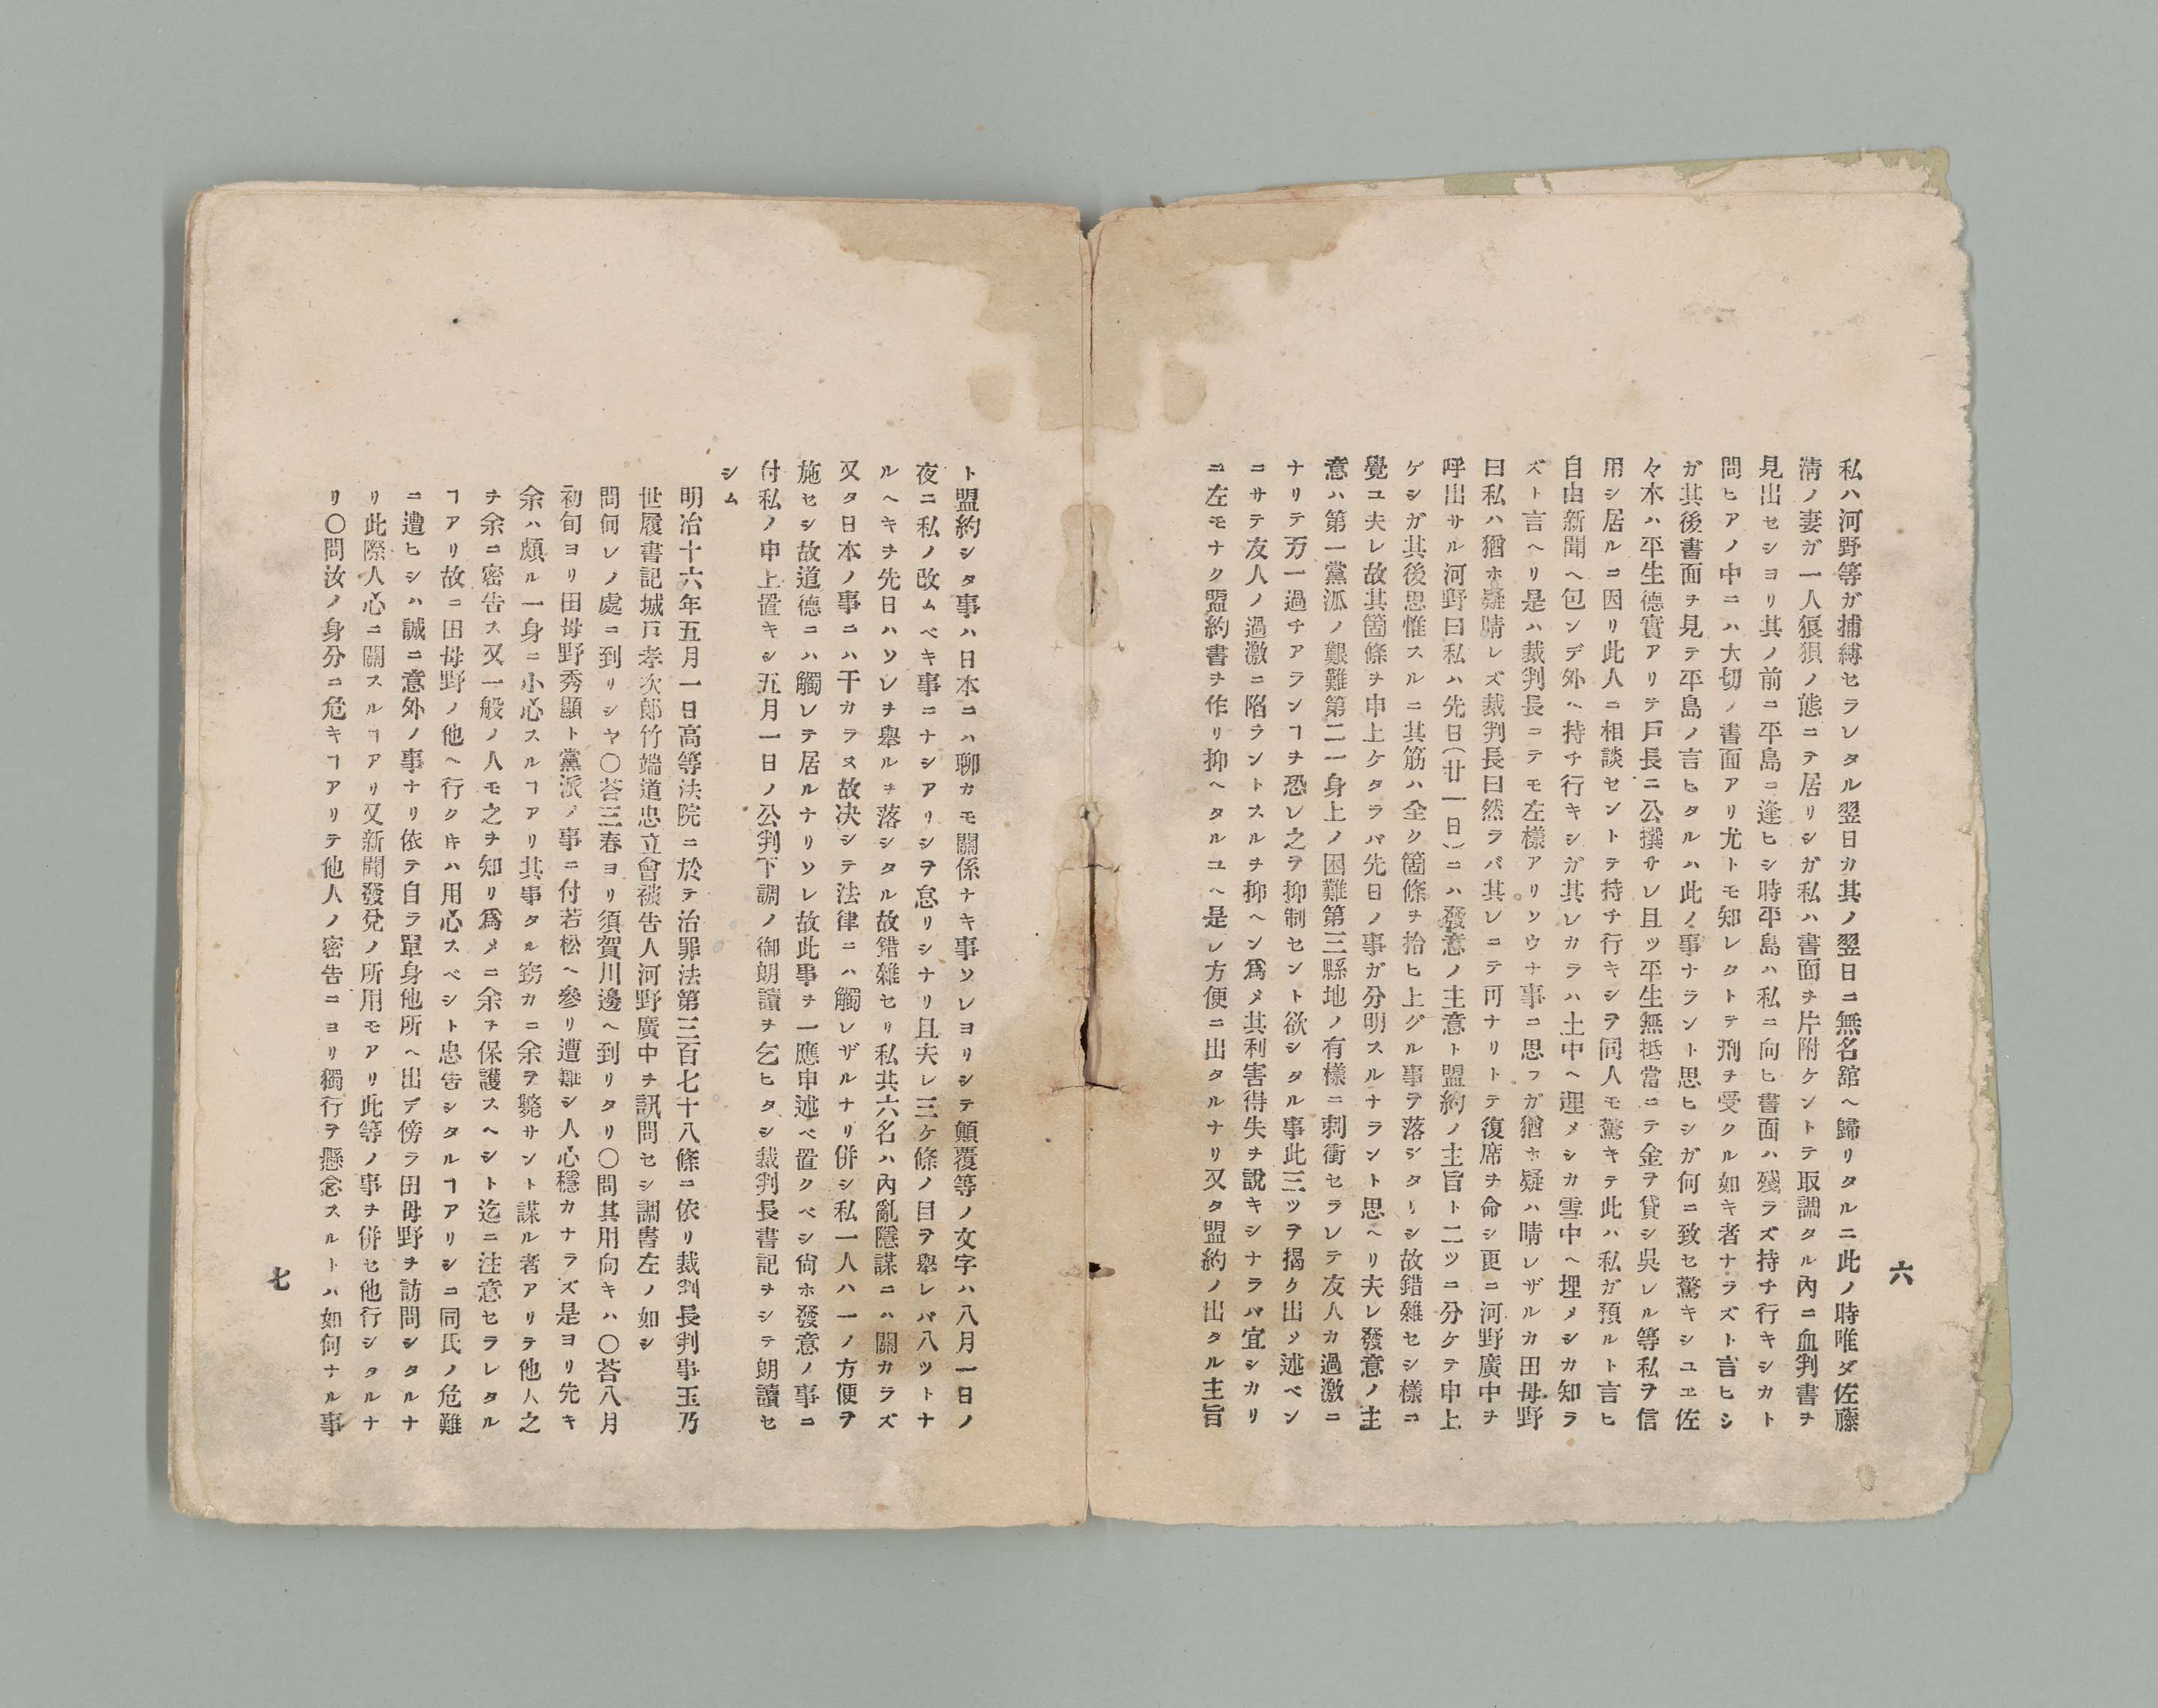 六
私ハ河野等ガ捕縛セラレタル翌日カ其ノ翌日ニ無名舘ヘ歸リタルニ此ノ時唯ダ佐藤
淸ノ妻ガ一人狼狽ノ態ニテ居リシガ私ハ書面ヲ片附ケントテ取調タル內ニ血判書ヲ
見出セシヨリ其ノ前ニ平島ニ逢ヒシ時平島ハ私ニ向ヒ書面ハ殘ラズ持チ行キシカト
問ヒアノ中ニハ大切ノ書面アリ尤トモ知レクトテ刑ヲ受クル如キ者ナラズト言ヒシ
ガ其後書面ヲ見テ平島ノ言ヒタルハ此ノ事ナラント思ヒシガ何ニ致セ驚キシユヱ佐
々木ハ平生德實アリテ戶長ニ公撰サレ且ツ平生無抵當ニテ金ヲ貸シ吳レル等私ヲ信
用シ居ルニ因リ此人ニ相談セントテ持チ行キシヲ同人モ驚キテ此ハ私ガ預ルト言ヒ
自由新聞ヘ包ンデ外ヘ持チ行キシガ其レカラハ土中ヘ埋メシカ雪中ヘ埋メシカ知ラ
ズト言ヘリ是ハ裁判長ニテモ左樣アリソウナ事ニ思フガ猶ホ疑ハ晴レザルカ田母野
曰私ハ猶ホ疑晴レズ裁判長曰然ラバ其レニテ可ナリトテ復席ヲ命シ更ニ河野廣中ヲ
呼出サル河野曰私ハ先日(廿一日)ニハ發意ノ主意ト盟約ノ主旨ト二ツニ分ケテ申上
ゲシガ其後思惟スルニ其筋ハ全ク箇條ヲ拾ヒ上グル事ヲ落シタリシ故錯雜セシ樣ニ
覺ユ夫レ故其箇條ヲ申上ケタラバ先日ノ事ガ分明スルナラント思ヘリ夫レ發意ノ主
意ハ第一黨派ノ艱難第二一身上ノ困難第三縣地ノ有樣ニ刺衝セラレテ友人カ過激ニ
ナリテ万一過チアランヿヲ恐レ之ヲ抑制セント欲シタル事此三ツヲ揭ク出ソ述ベン
ニサテ友人ノ過激ニ陷ラントスルヲ抑ヘン爲メ其利害得失ヲ說キシナラバ宜シカリ
ニ左モナク盟約書ヲ作リ抑ヘタルユヘ是レ方便ニ出タルナリ又タ盟約ノ出タル主旨
ト盟約シタ事ハ日本ニハ聊カモ關係ナキ事ソレヨリシテ顛覆等ノ文字ハ八月一日ノ
夜ニ私ノ改ムベキ事ニナシアリシヲ怠リシナリ且夫レ三ケ條ノ目ヲ擧レバ八ツトナ
ルヘキヲ先日ハソレヲ擧ルヲ落シタル故錯雜セリ私共六名ハ內亂隱謀ニハ關カラズ
又タ日本ノ事ニハ干カラヌ故決シテ法律ニハ觸レザルナリ併シ私一人ハ一ノ方便ヲ
施セシ故道德ニハ觸レテ居ルナリソレ故此事ヲ一應申述ベ置クベシ尙ホ發意ノ事ニ
付私ノ申上置キシ五月一日ノ公判下調ノ御朗讀ヲ乞ヒタシ裁判長書記ヲシテ朗讀セ
シム
明治十六年五月一日高等法院ニ於テ治罪法第三百七十八條ニ依リ裁判長判事玉乃
世履書記城戶孝次郞竹端道忠立會被告人河野廣中ヲ訊問セシ調書左ノ如シ
問何レノ處ニ到リシヤ〇荅三春ヨリ須賀川邊ヘ到リタリ〇問其用向キハ〇荅八月
初旬ヨリ田母野秀顯ト黨派ノ事ニ付若松ヘ參リ遭難シ人心穩カナラズ是ヨリ先キ
余ハ頗ル一身ニ小心スルヿアリ其事タル窃カニ余ヲ斃サント謀ル者アリテ他人之
ヲ余ニ密告ス又一般ノ人モ之ヲ知リ爲メニ余ヲ保護スヘシト迄ニ注意セラレタル
ヿアリ故ニ田母野ノ他ヘ行ク𪜈ハ用心スベシト忠告シタルヿアリシニ同氏ノ危難
ニ遭ヒシハ誠ニ意外ノ事ナリ依テ自ラ單身他所ヘ出デ傍ラ田母野ヲ訪問シタルナ
リ此際人心ニ關スルヿアリ又新聞發兌ノ所用モアリ此等ノ事ヲ併セ他行シタルナ
リ〇問汝ノ身分ニ危キヿアリテ他人ノ密告ニヨリ獨行ヲ懸念スルトハ如何ナル事
七